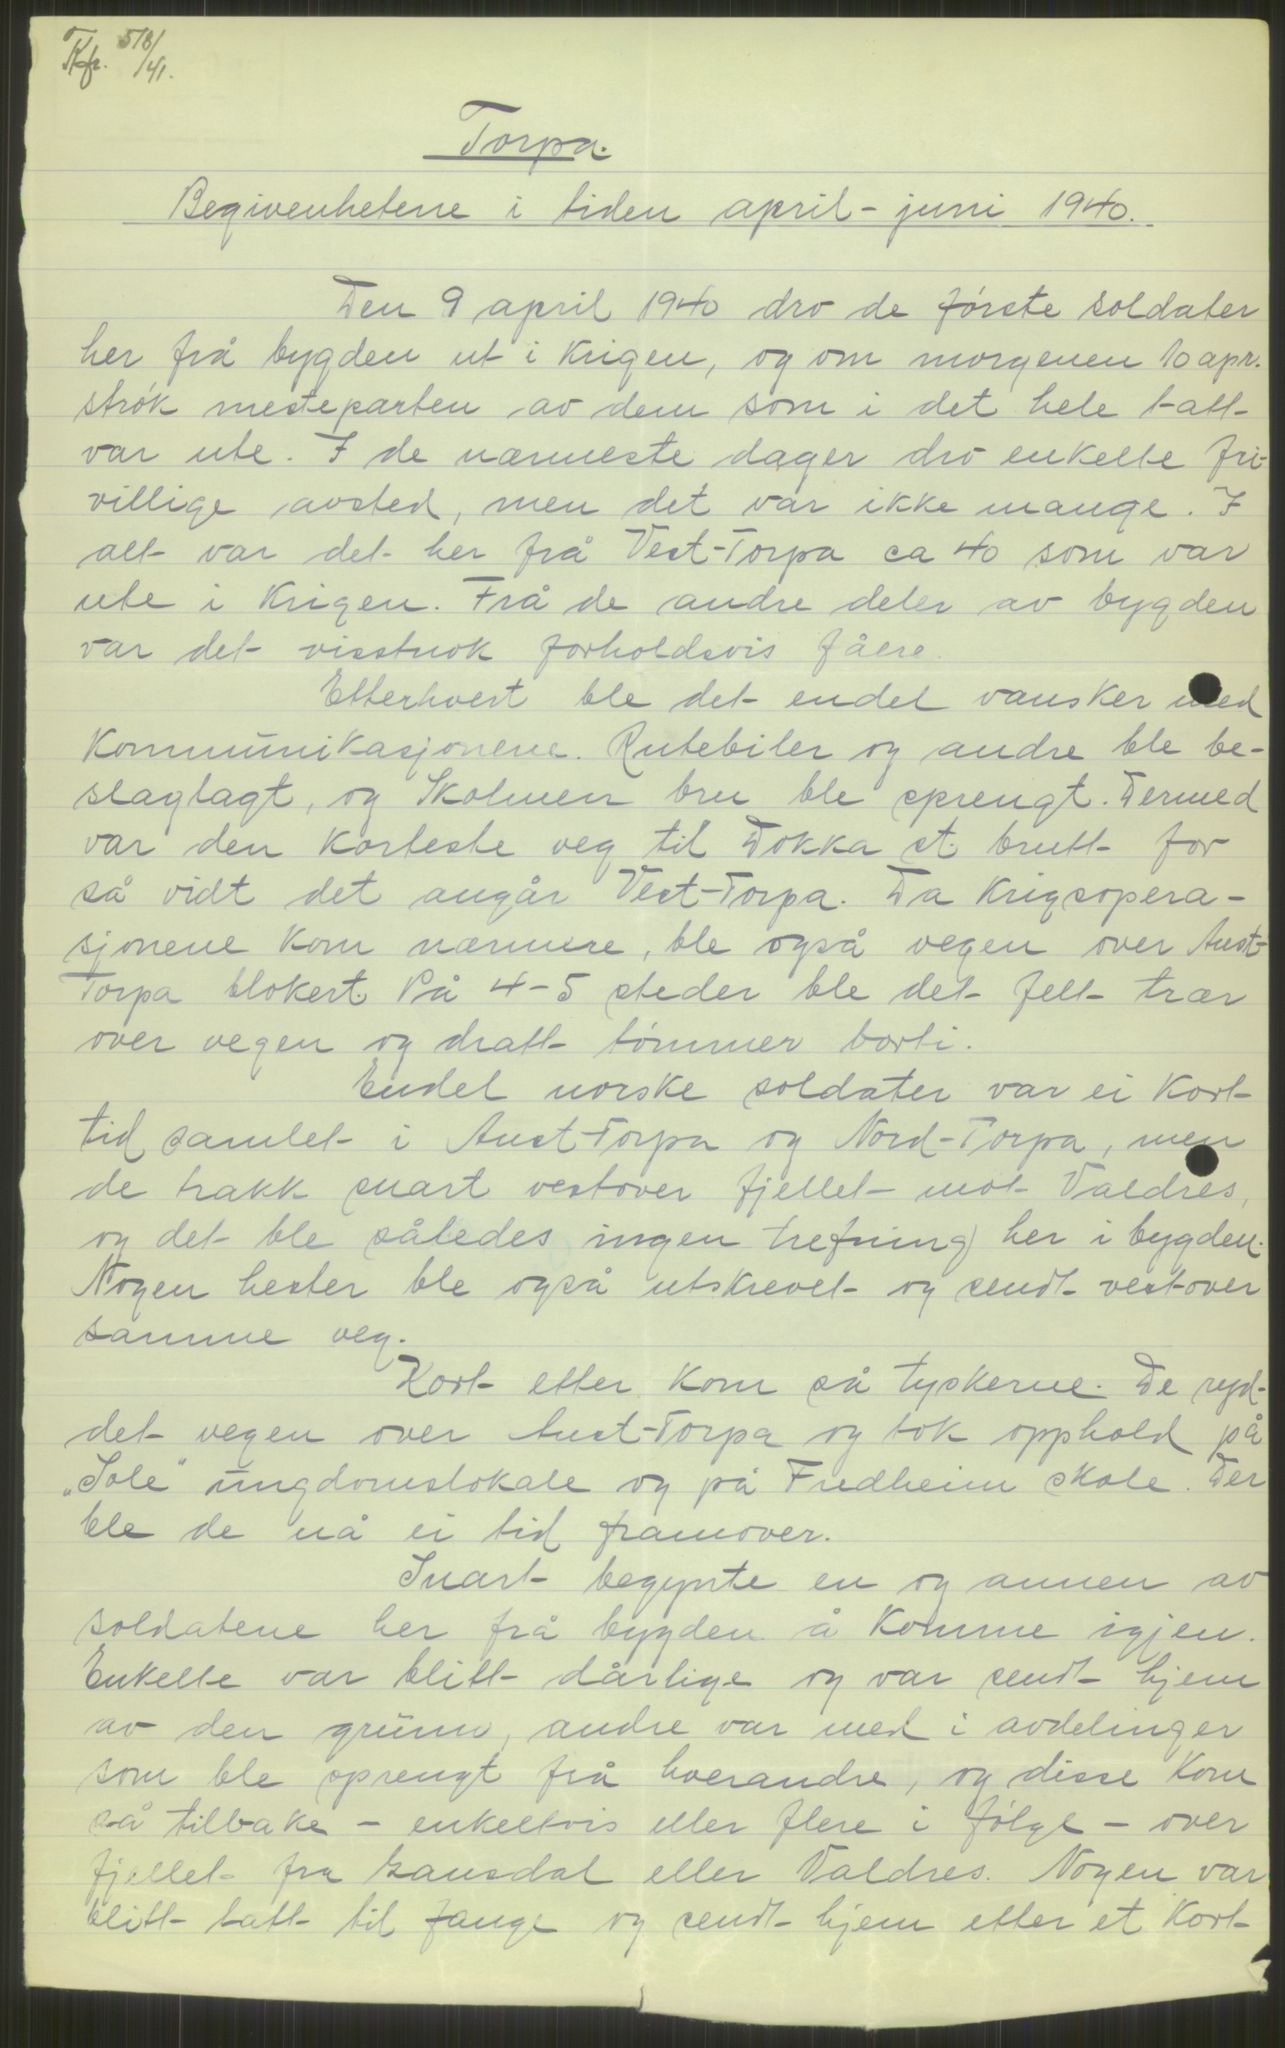 Kfr. 5/8/41.
Torpa.
Begivenhetene i tiden april - juni 1940.
Den 9 april 1940 dro de første soldater
her frå bygden ut i krigen, og om morgenen 10 apr.
strøk mesteparten av dem som i det hele tatt
var ute. I de nærmeste dager dro enkelte fri-
villige avsted, men det var ikke mange. I
alt var det her frå Vest-Torpa ca 40 som var
ute i krigen. Frå de andre deler av bygden
var det visstnok forholdsvis fåere.
Etterhvert ble det endel vansker med
kommunikasjonene. Rutebiler og andre ble be-
slaglagt, og Skolmen bru ble sprengt. Dermed
var den korteste veg til Dokka st. brutt for
så vidt det angår Vest-Torpa. Da krigsopera-
sjonene kom nærmere, ble også vegen over Aust-
Torpa blokert. På 4-5 steder ble det felt trær
over vegen og dratt tømmer borti.
Endel norske soldater var ei kort
tid samlet i Aust-Torpa og Nord-Torpa, men
de trakk snart vestover fjellet mot Valdres,
og det ble således ingen trefning her i bygden.
Nogen hester ble også utskrevet og sendt vestover
samme veg.
Kort etter kom så tyskerne. De ryd-
det vegen over Aust-Torpa og tok opphold på
„Sole" ungdomslokale og på Fredheim skole. Der
ble de nå ei tid framover.
Snart begynte en og annen av
soldatene her frå bygden å komme igjen.
Enkelte var blitt dårlige og var sendt hjem
av den grunn, andre var med i avdelinger
som ble sprengt frå hverandre, og disse kom
så tilbake - enkeltvis eller flere i følge - over
fjellet fra Gausdal eller Valdres. Nogen var
blitt tatt til fange og sendt hjem etter et kort